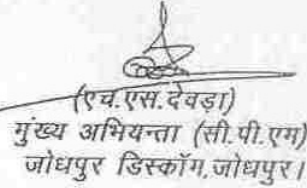 (एच.एस.देवड़ा)
मुंख्य अभियन्ता (सी.पी.एम)
जोधपुर डिस्कॉम,जोधपुर।